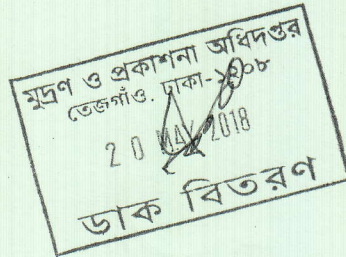 মুদ্রণ ও প্রকাশনা অধিদপ্তর
তেজগাঁও. ঢাকা-১২০৮
20 MAY 2018
ডাক বিতরণ